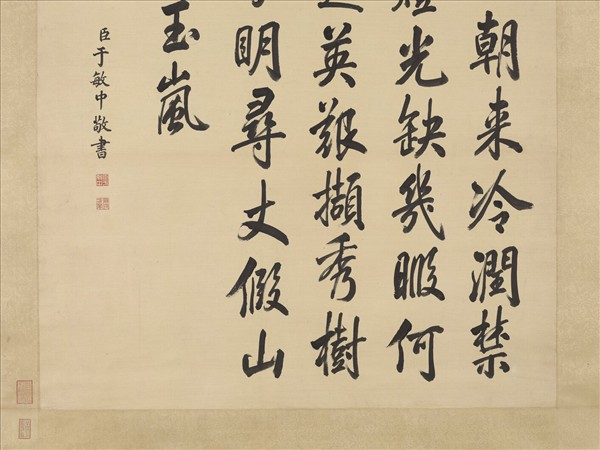 朝来冷潤禁
光缺幾暇何
英艱擷秀樹
明尋丈假山
玉嵐
臣于敏中敬書